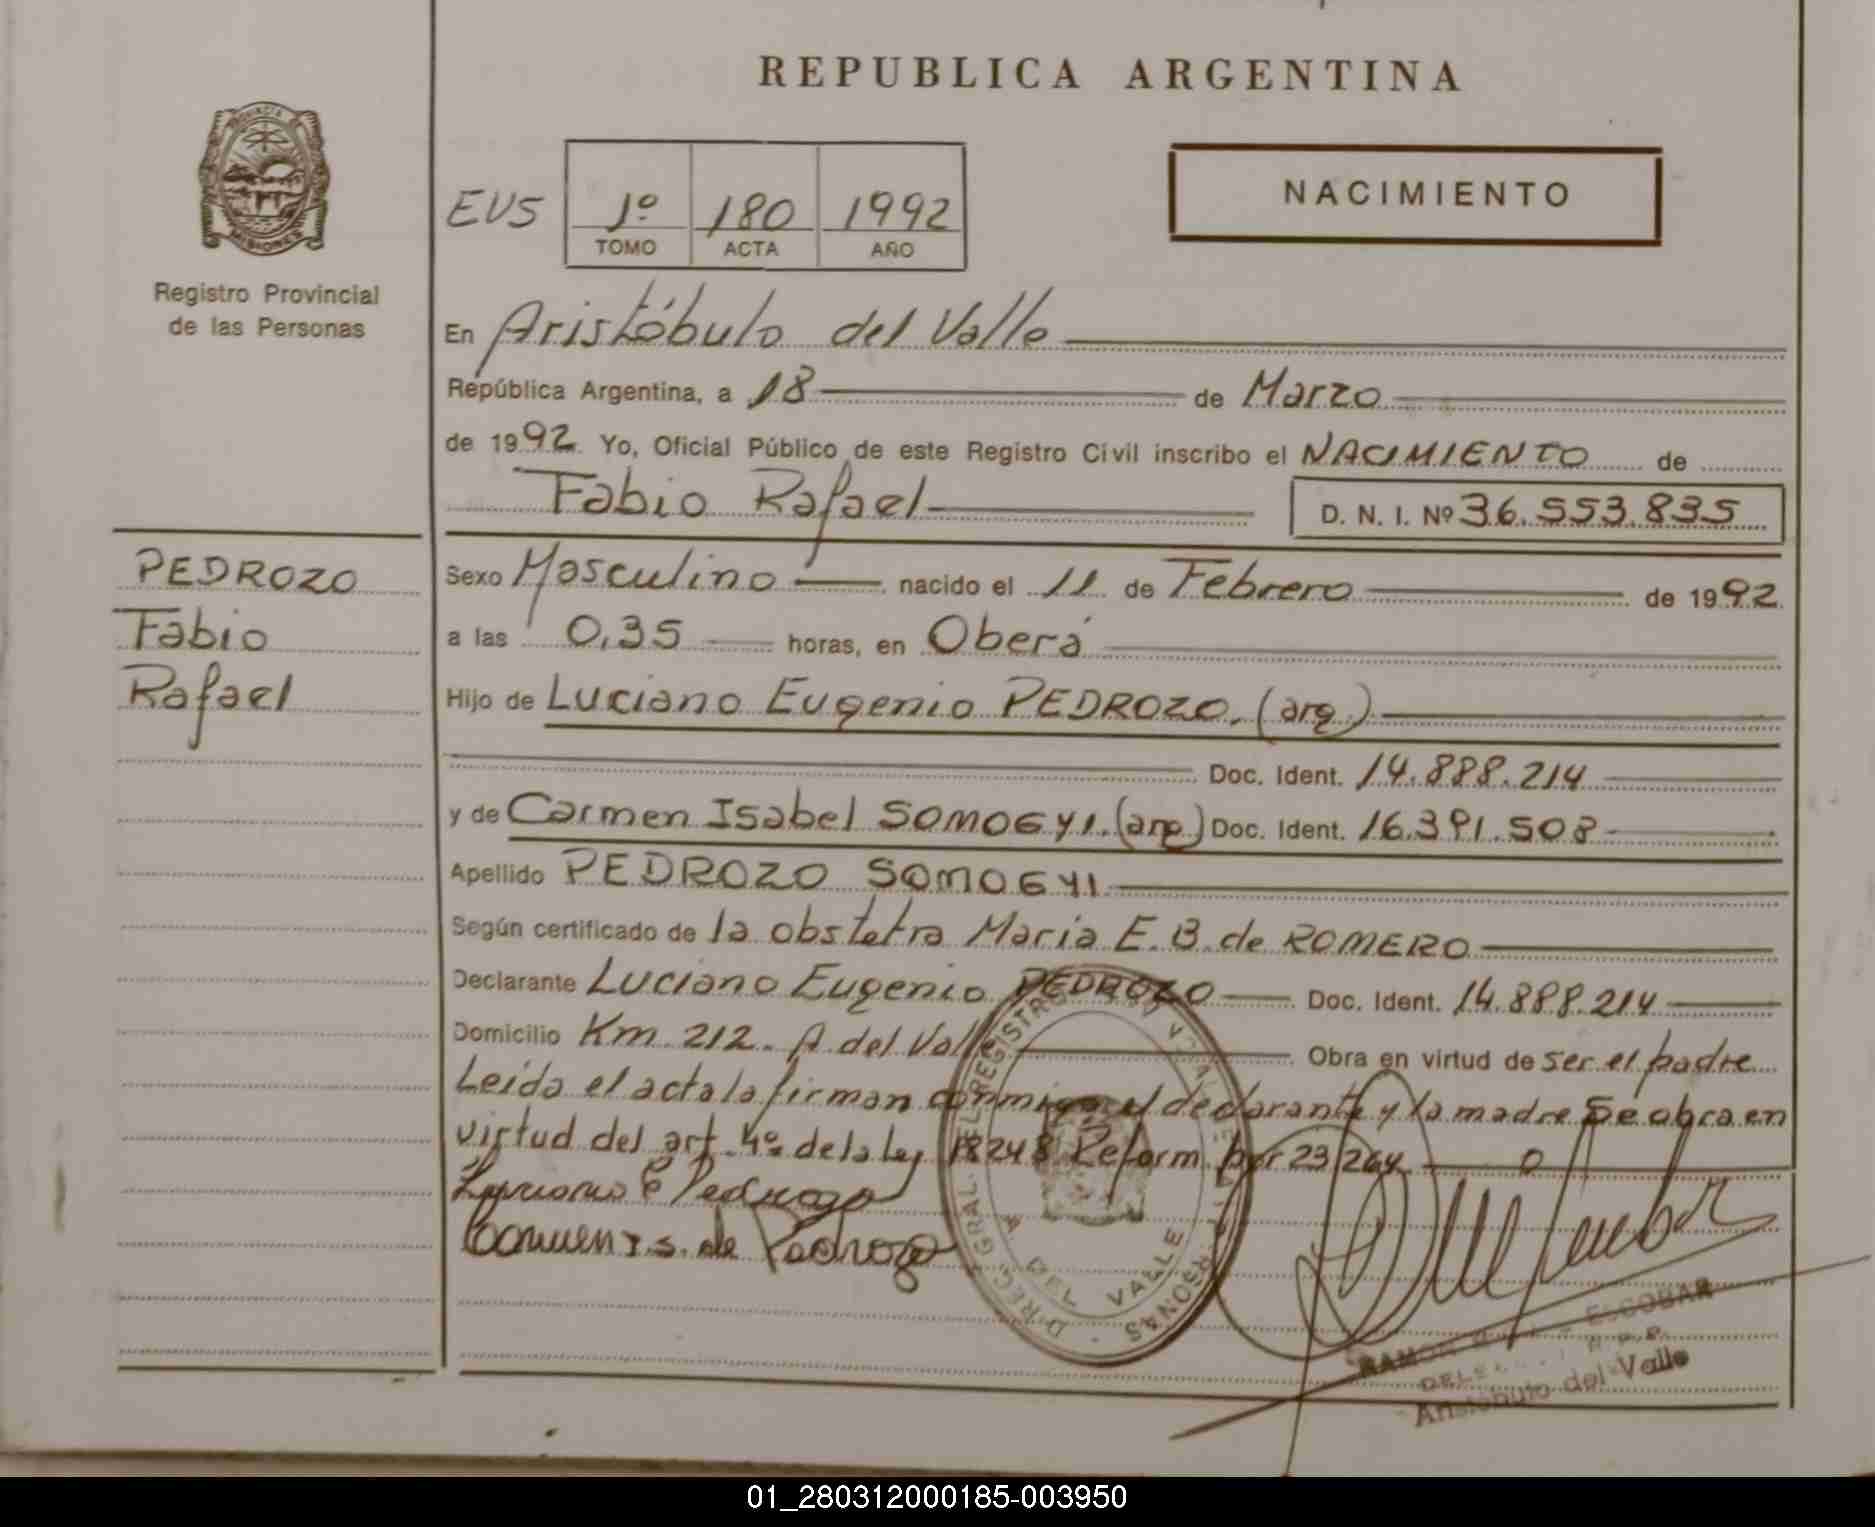 REPUBLICA ARGENTINA
PROVINCIA
MISIONES
Registro Provincial
de las Personas
NACIMIENTO
EVS 1º 180 1992
TOMO ACTA AÑO
En Aristóbulo del Valle
República Argentina, a 18 de Marzo
de 1992 Yo, Oficial Público de este Registro Civil inscribo el NACIMIENTO de
Fabio Rafael D. N. I. Nº 36.553.835
PEDROZO
Fabio
Rafael
Sexo Masculino nacido el 11 de Febrero de 1992
a las 0,35 horas, en Oberá
Hijo de Luciano Eugenio PEDROZO. (arg.)
Doc. Ident. 14.888.214
y de Carmen Isabel SOMOGYI. (arg) Doc. Ident. 16.391.508
Apellido PEDROZO SOMOGYI
Según certificado de la obstetra Maria E. B. de ROMERO
Declarante Luciano Eugenio PEDROZO Doc. Ident. 14.888.214
Domicilio Km. 212. A del Valle Obra en virtud de ser el padre
Leida el acta la firman conmigo el declarante y la madre Se obra en
virtud del art. 4º de la ley 18248 Reform. por 23264
Luciano E Pedrozo
Carmen I. S. de Pedrozo
DIREC. GRAL. DEL REGISTRO PERSONAS
DEL VALLE
RAMON ESCOBAR
R. P. P.
Aristóbulo del Valle
01_280312000185-003950